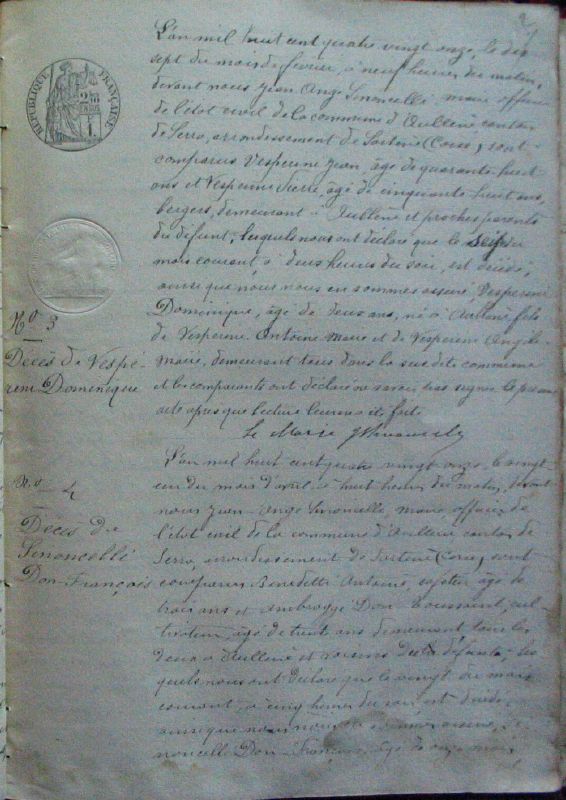 2
RÉPUBLIQUE FRANÇAISE
L'an mil huit cent quatre vingt onze, le dix
sept du mois de février, à neuf heures du matin,
devant nous Jean Ange Simoncelli, maire officier
de l'état civil de la commune d'Aullène canton
de Serra, arrondissement de Sartène (Corse), sont
comparus Vesperini Jean, âgé de quarante huit
ans et Vesperini Pierre, âgé de cinquante huit ans,
bergers, demeurant à Aullène et proches parents
du défunt, lesquels nous ont déclaré que le seize du
mois courant, à deux heures du soir, est décédé,
ainsi que nous nous en sommes assuré, Vesperini
Dominique, âgé de deux ans, né à Aullène fils
de Vesperini Antoine Marie et de Vesperini Angèle
Marie, demeurant tous dans la susdite commune
et les comparants ont déclaré ne savoir pas signer le présent
acte après que lecture leur en a été faite
Le Maire
No 3
Décès de Vespé-
rini Dominique
L'an mil huit cent quatre vingt onze, le vingt
un du mois d'avril à huit heures du matin, devant
nous Jean Ange Simoncelli, maire officier de
l'état civil de la commune d'Aullène canton de
Serra, arrondissement de Sartène (Corse), sont
comparus Benedetti Antoine, âgé de
ans et Don Toussaint, cul-
tivateur, âgé de trente ans demeurant tous les
deux à Aullène et voisins du défunt, les
quels nous ont déclaré que le vingt du mois
courant, à cinq heures du soir est décédé
ainsi que nous nous en sommes assuré, Si-
moncelli Don François, âgé de onze mois
No 4
Décès de
Simoncelli
Don François